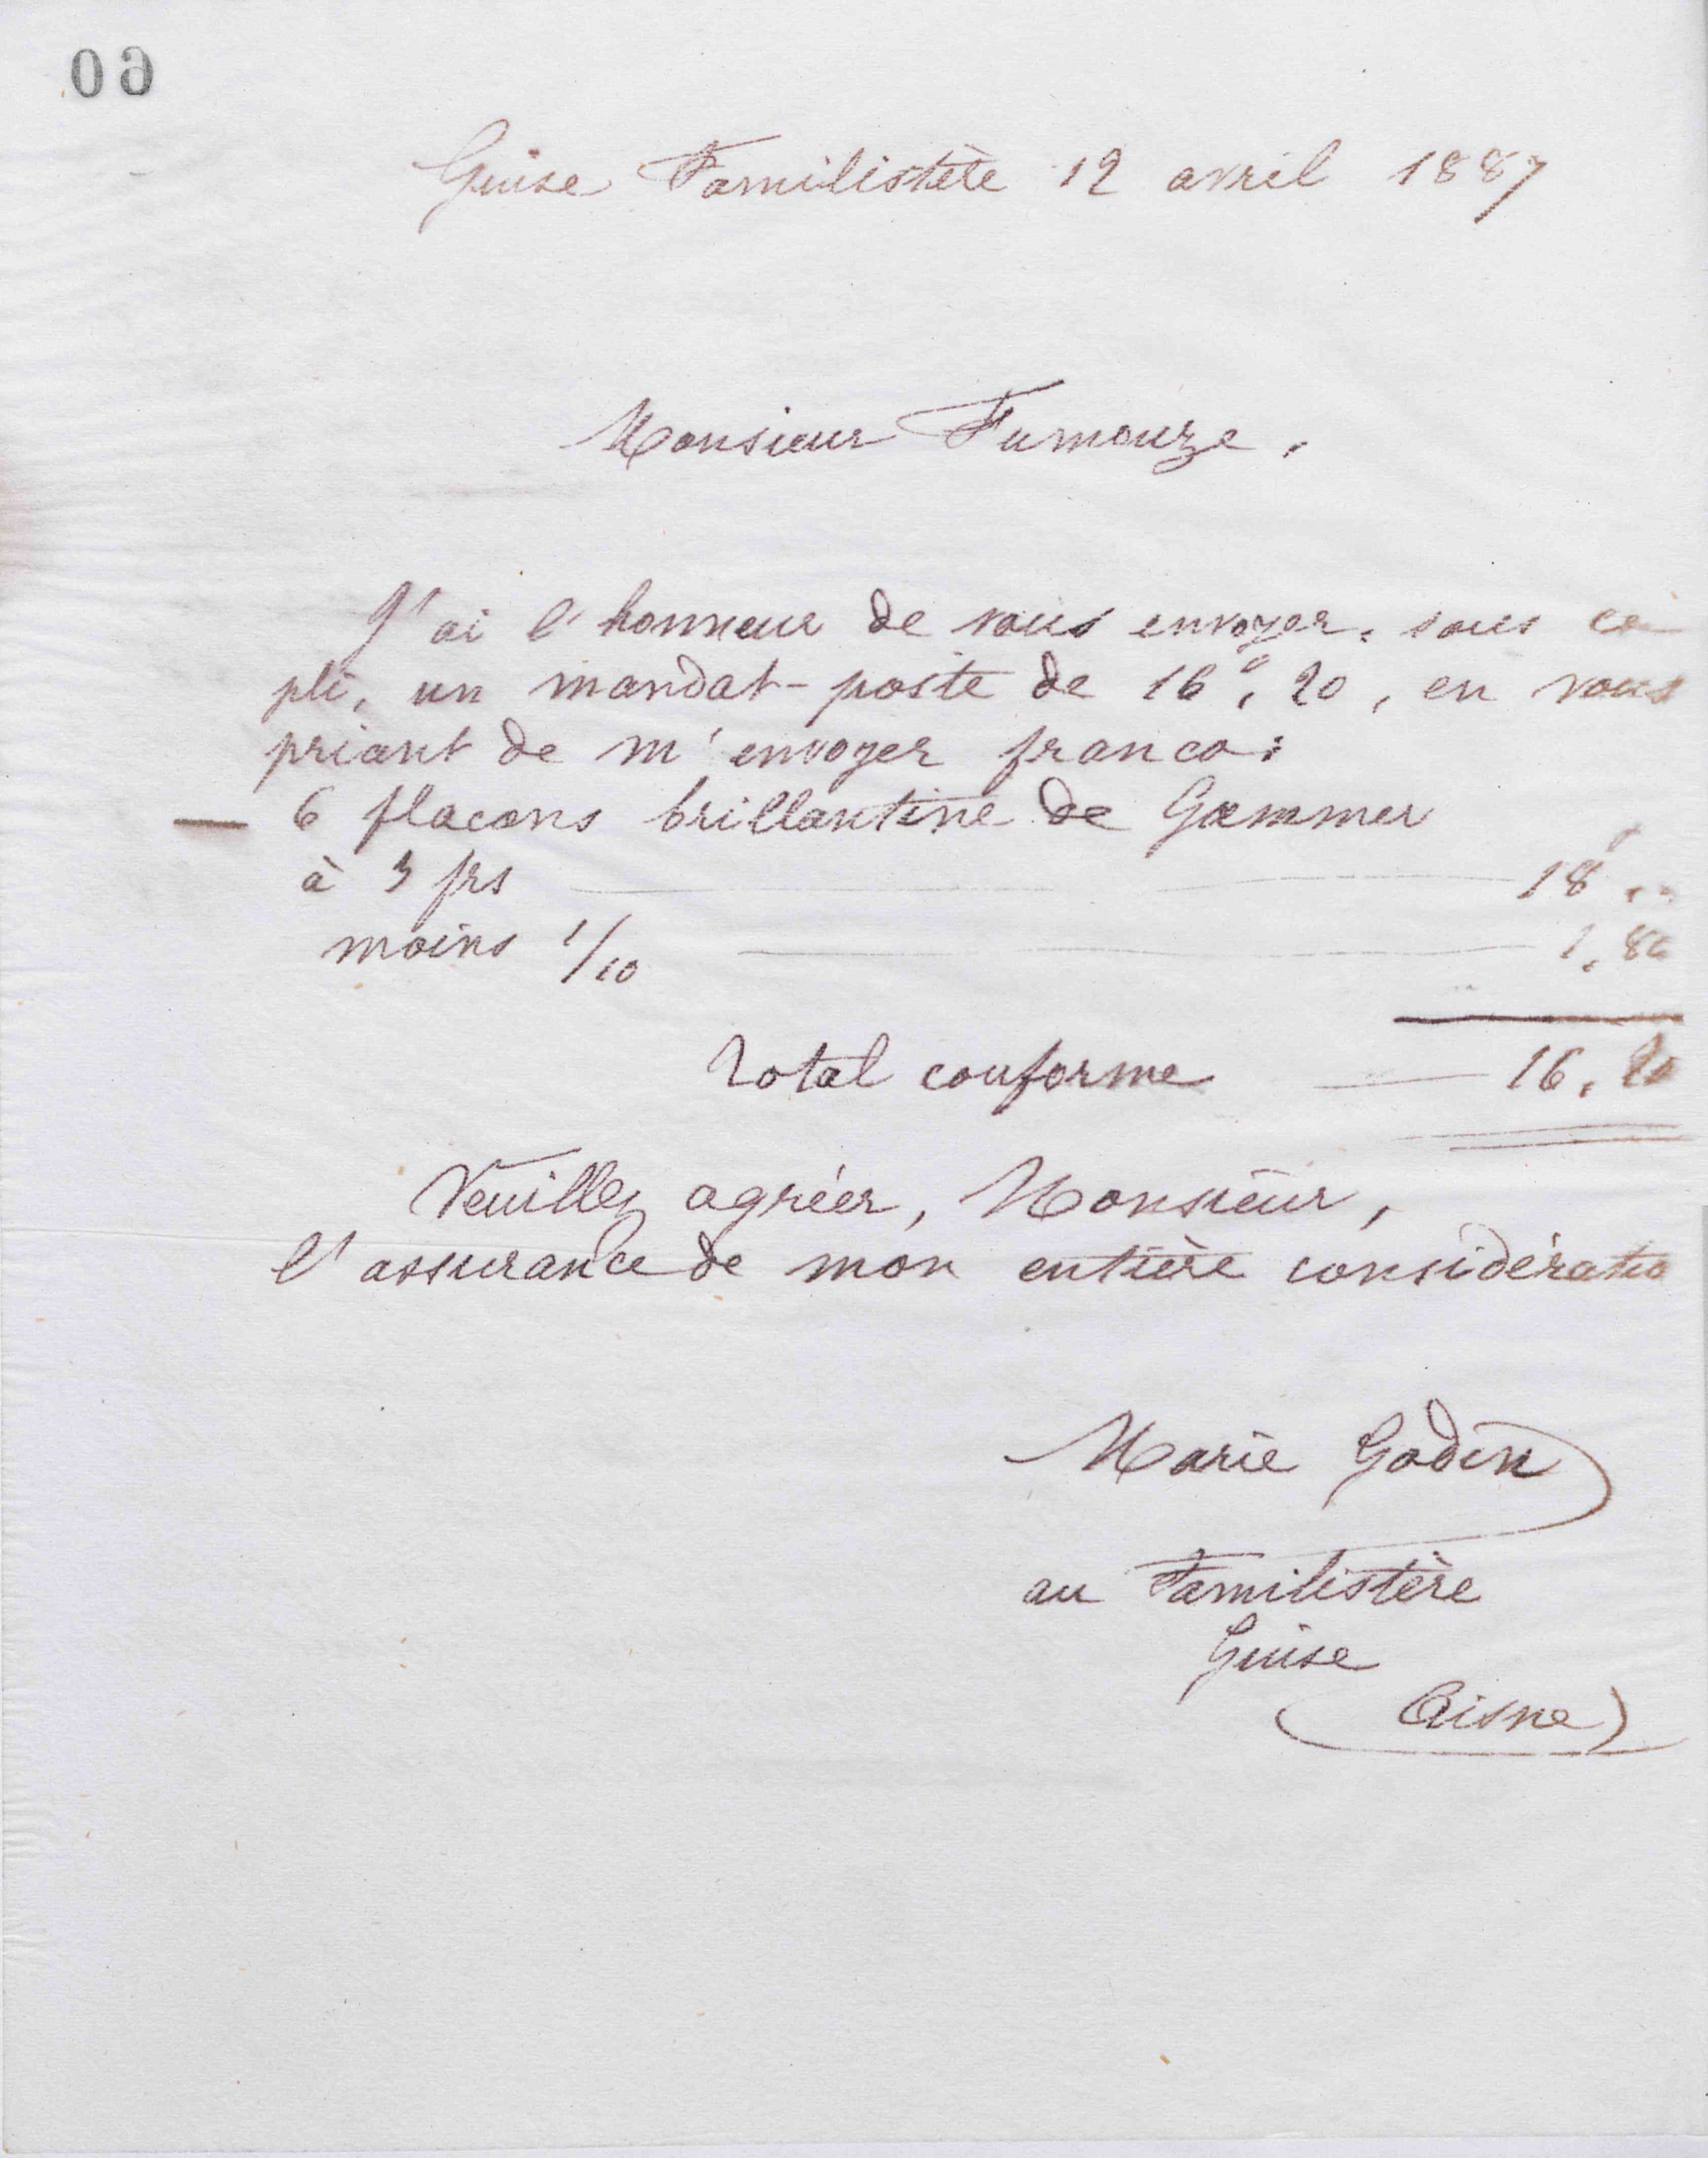 60
Guise Familistère 12 avril 1887
Monsieur Fumouze,
J'ai l'honneur de vous envoyer, sous ce
pli, un mandat-poste de 16f, 20, en vous
priant de m'envoyer franco:
— 6 flacons brillantine de Gammer
à 3 frs — 18f ,,
moins 1/10 — 1,80
Total conforme — 16,20
Veuillez agréer, Monsieur,
l'assurance de mon entière considératio
Marie Godin
au Familistère
Guise
(Aisne)